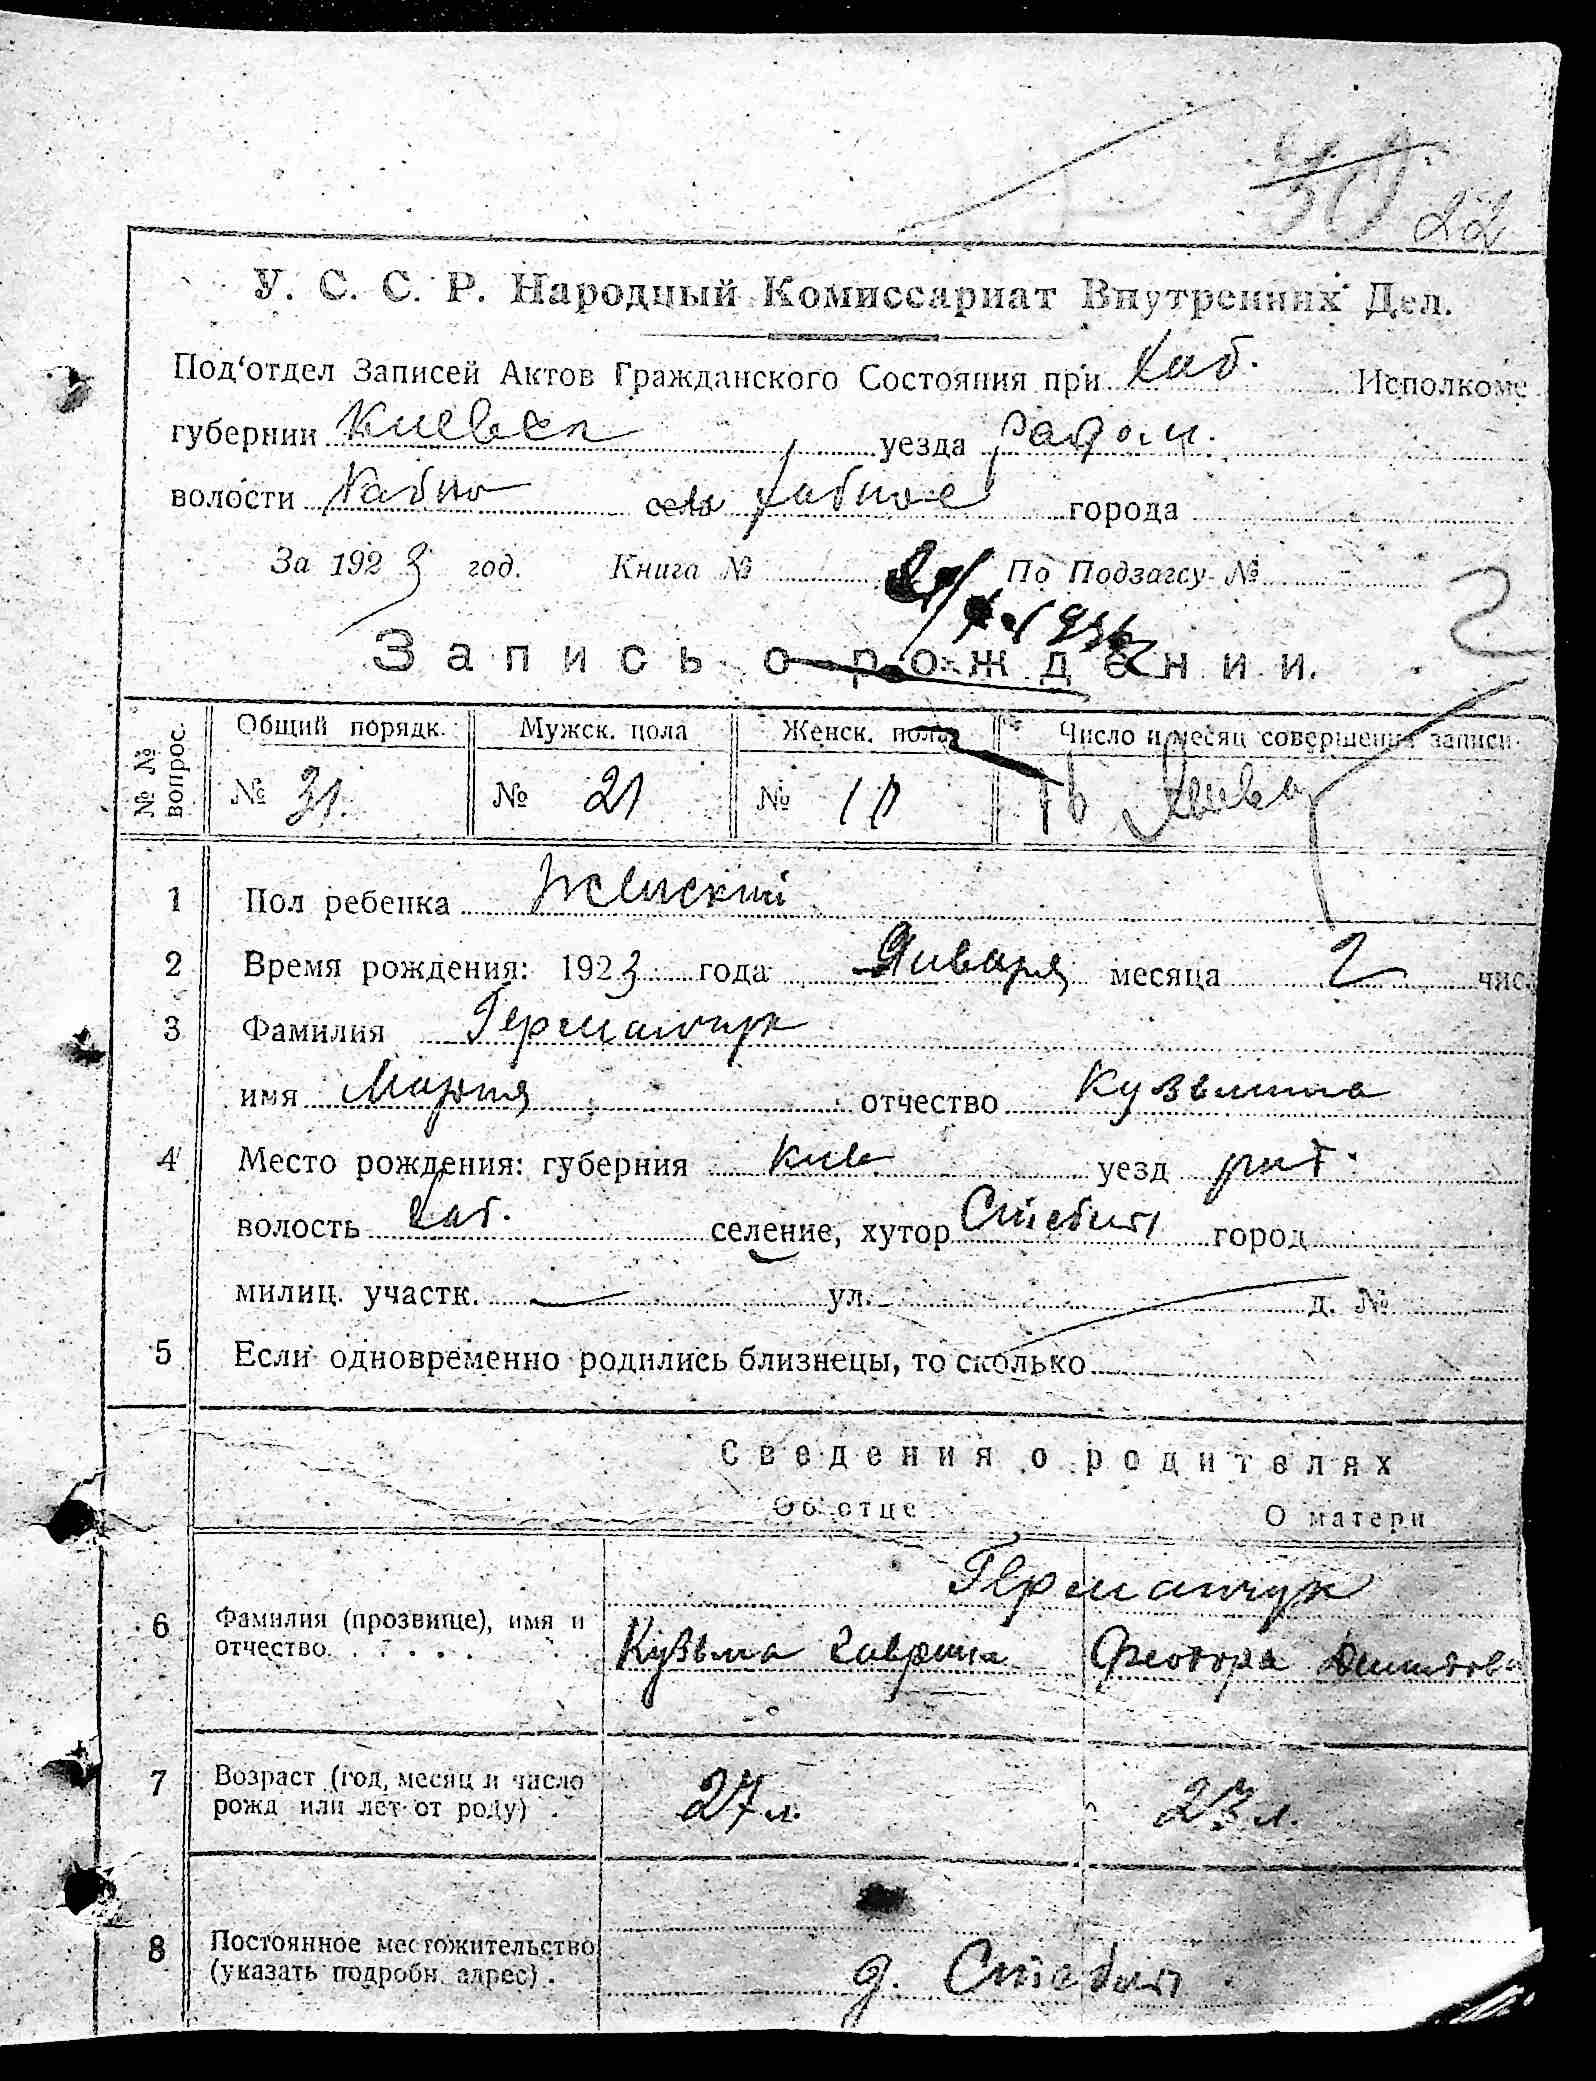 22
У. С. С. Р. Народный Комиссариат Внутренних Дел.
Под'отдел Записей Актов Гражданского Состояния при Хаб. Исполкоме
губернии Киевск уезда Радом.
волости Хабно село Хабное города
За 1923 год. Книга № По Подзагсу №
Запись о рождении.
№№ вопрос. Общий порядк. Мужск. пола Женск. пола Число и месяц совершения записи
№ 31. № 21 № 10 Января
1 Пол ребенка Женский
2 Время рождения: 1923 года Января месяца 2 чис.
3 Фамилия Германчук
имя Мария отчество Кузьмина
4 Место рождения: губерния Киев уезд
волость Хаб. селение, хутор город
милиц. участк. ул. д. №
5 Если одновременно родились близнецы, то сколько
Сведения о родителях
Об отце О матери
Германчук
6 Фамилия (прозвище), имя и отчество Кузьма Феодора
7 Возраст (год, месяц и число рожд или лет от роду) 27 л. 23 л.
8 Постоянное местожительство (указать подробн. адрес) д.